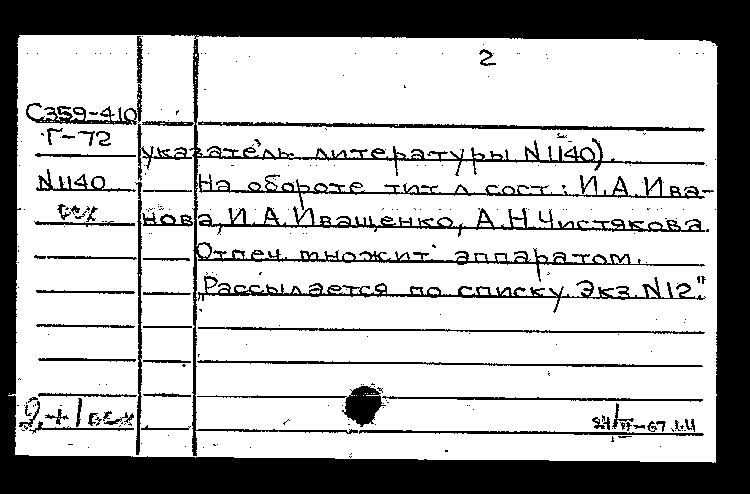 2
С359-410
Г-72
указатель литературы N1140).
N1140
На обороте тит л сост.: И.А.Ива-
нова, И.А.Иващенко, А.Н.Чистякова.
Отпеч. множит аппаратом.
„Рассылается по списку. Экз. N12."
2+1